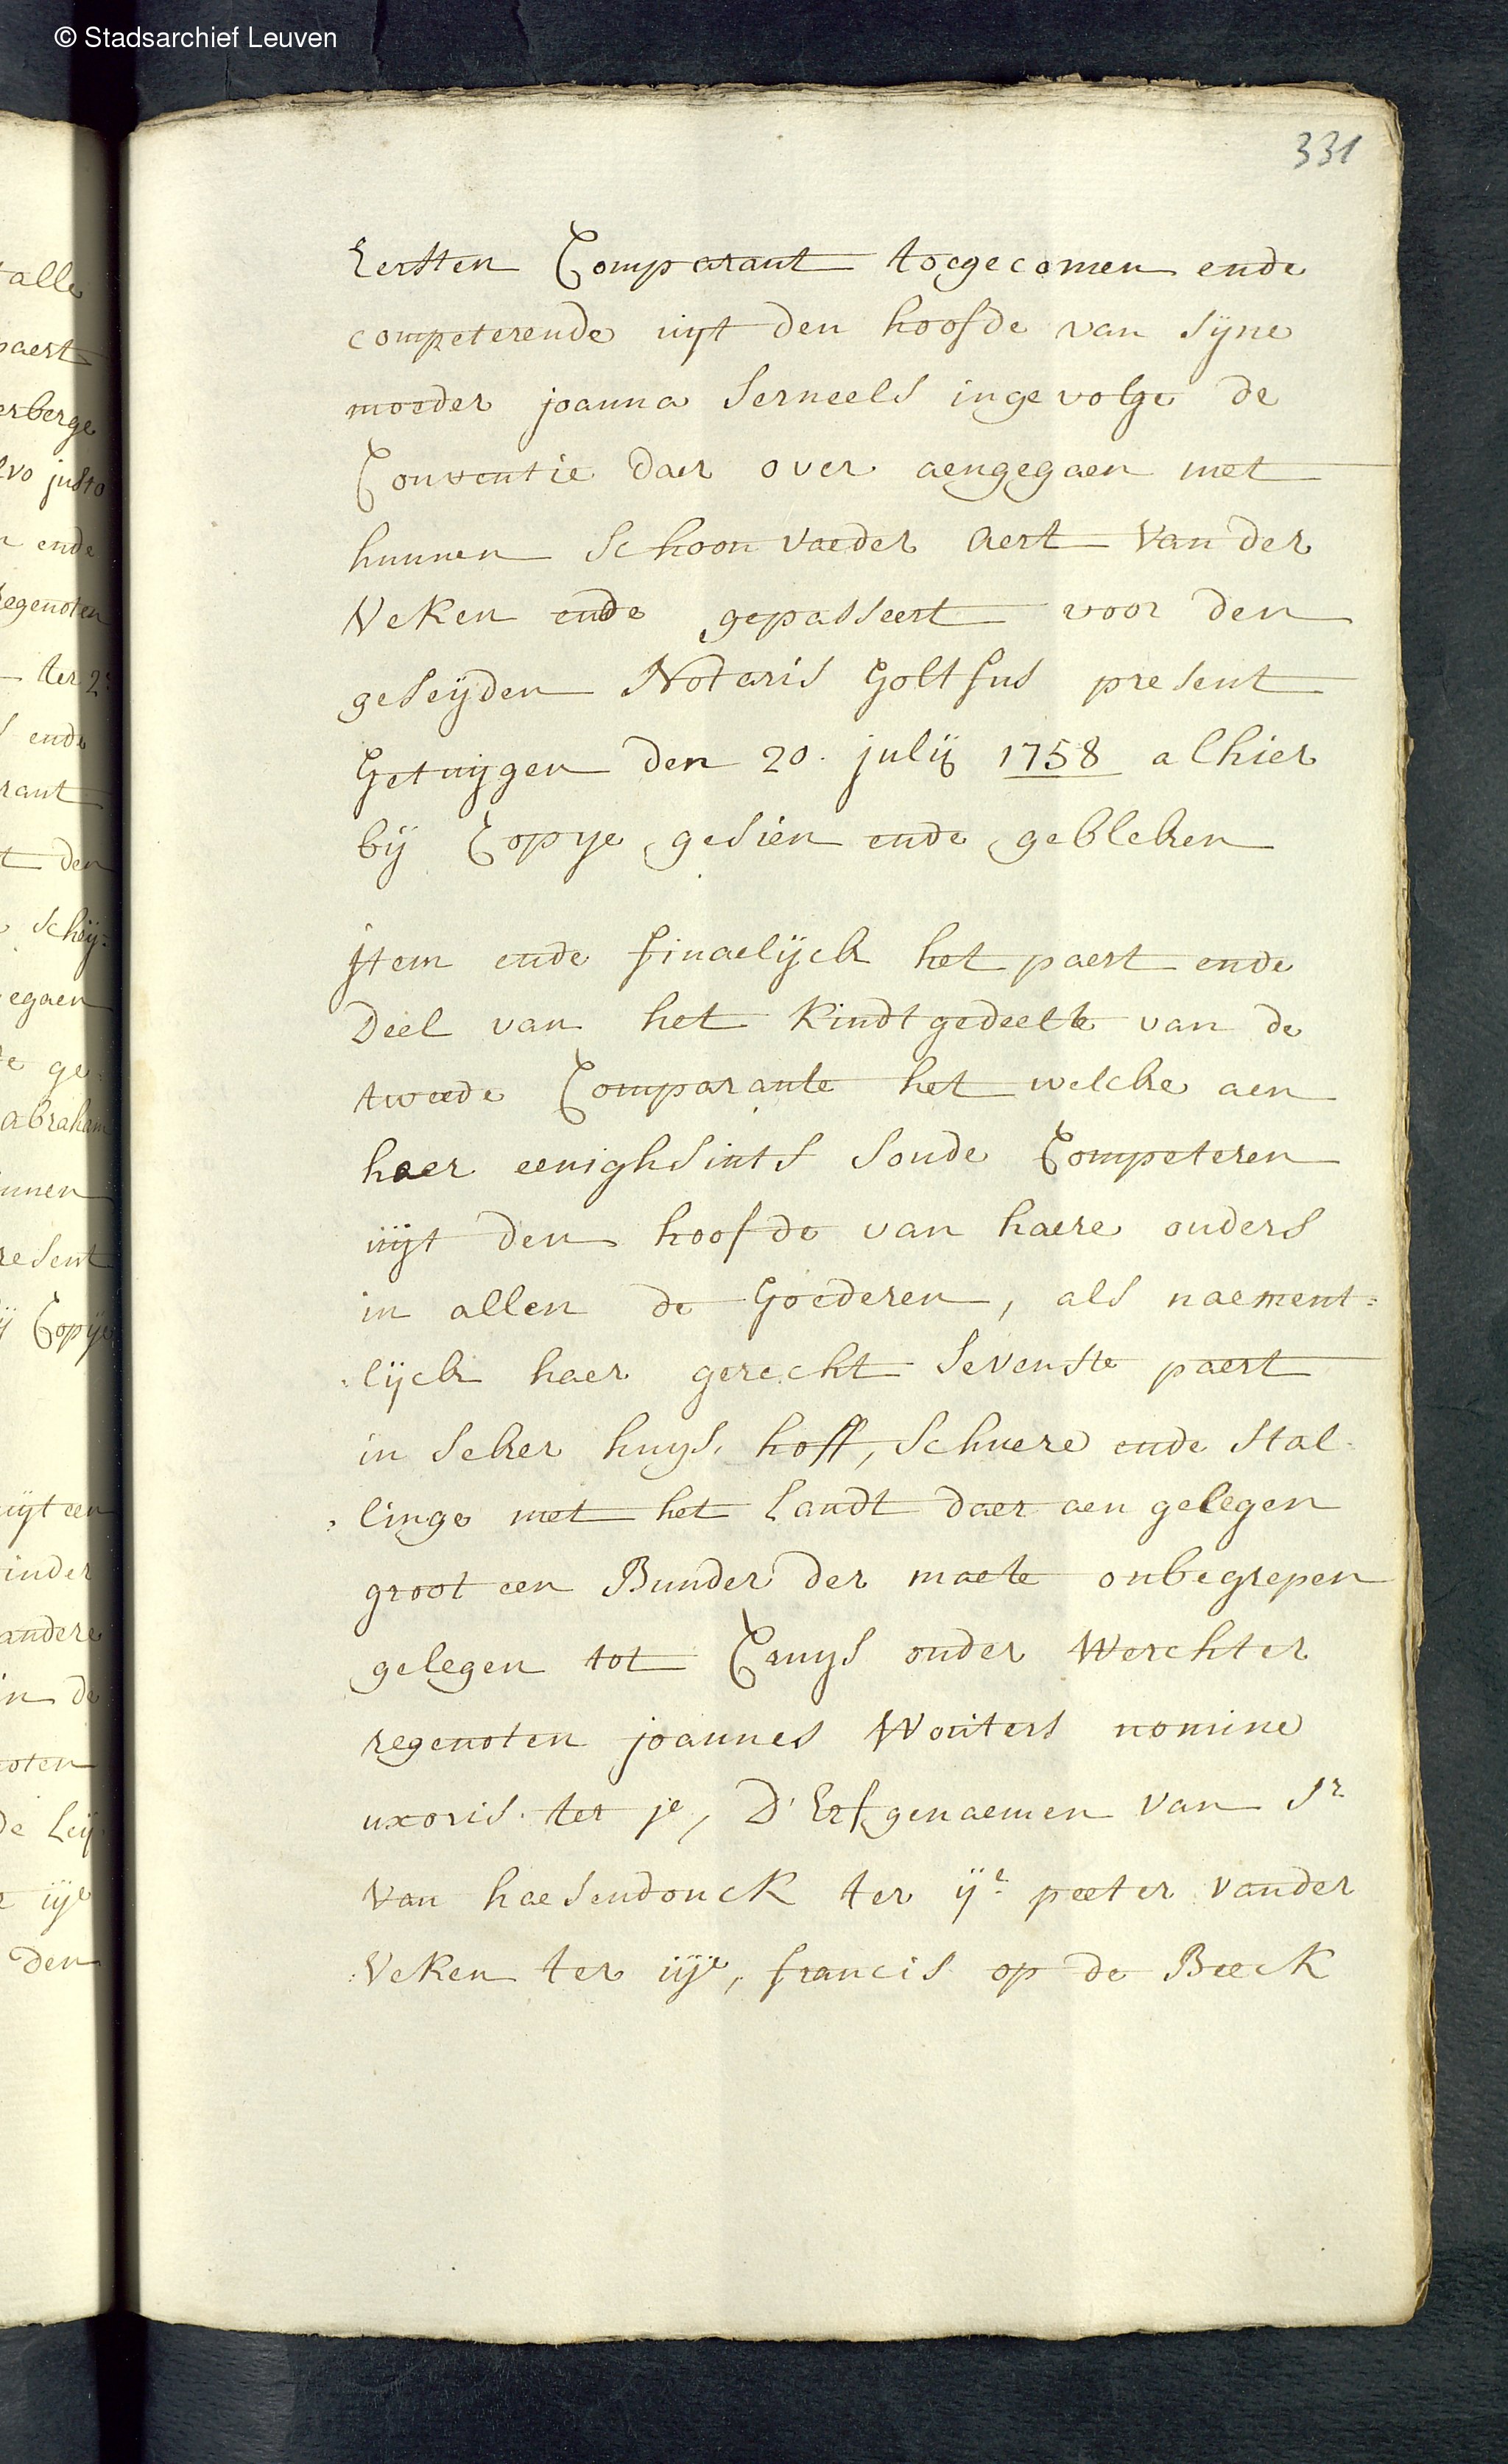 © Stadsarchief Leuven
331
alle
paert
erberge
lvo justo
ende
regenoten
ter 2e
ende
rant
t den
schey=
egaen
e ge
abraham
nnen
resent
ij Copije
uijt een
inder
andere
in de
noten
de Leij
iije
den
Eersten Comparant toegecomen ende
competerende uijt den hoofde van sijne
moeder joanna Serneels ingevolge de
Conventie daer over aengegaen met
hunnen schoonvaeder Aert Van der
Veken ende gepasseert voor den
geseijden Notaris Goltfus present
Getuijgen den 20. julij 1758 alhier
bij Copije gesien ende gebleken
jtem ende finaelijck het paert ende
Deel van het Kindtgedeelte van de
tweede Comparante het welcke aen
haer eenighsints soude Competeren
uijt den hoofde van haere ouders
in allen de Goederen, als naement=
:lijck haer gerecht sevenste paert
in seker huijs, hoff, schuere ende stal=
:linge met het Landt daer aen gelegen
groot een Bunder der maete onbegrepen
gelegen tot Cruijs onder Werchter
regenoten joannes Wouters nomine
uxoris ter je, D'Erfgenaemen van Sr
Van haesendonck ter ije peeter vander
Veken ter iije, francis op de Beeck